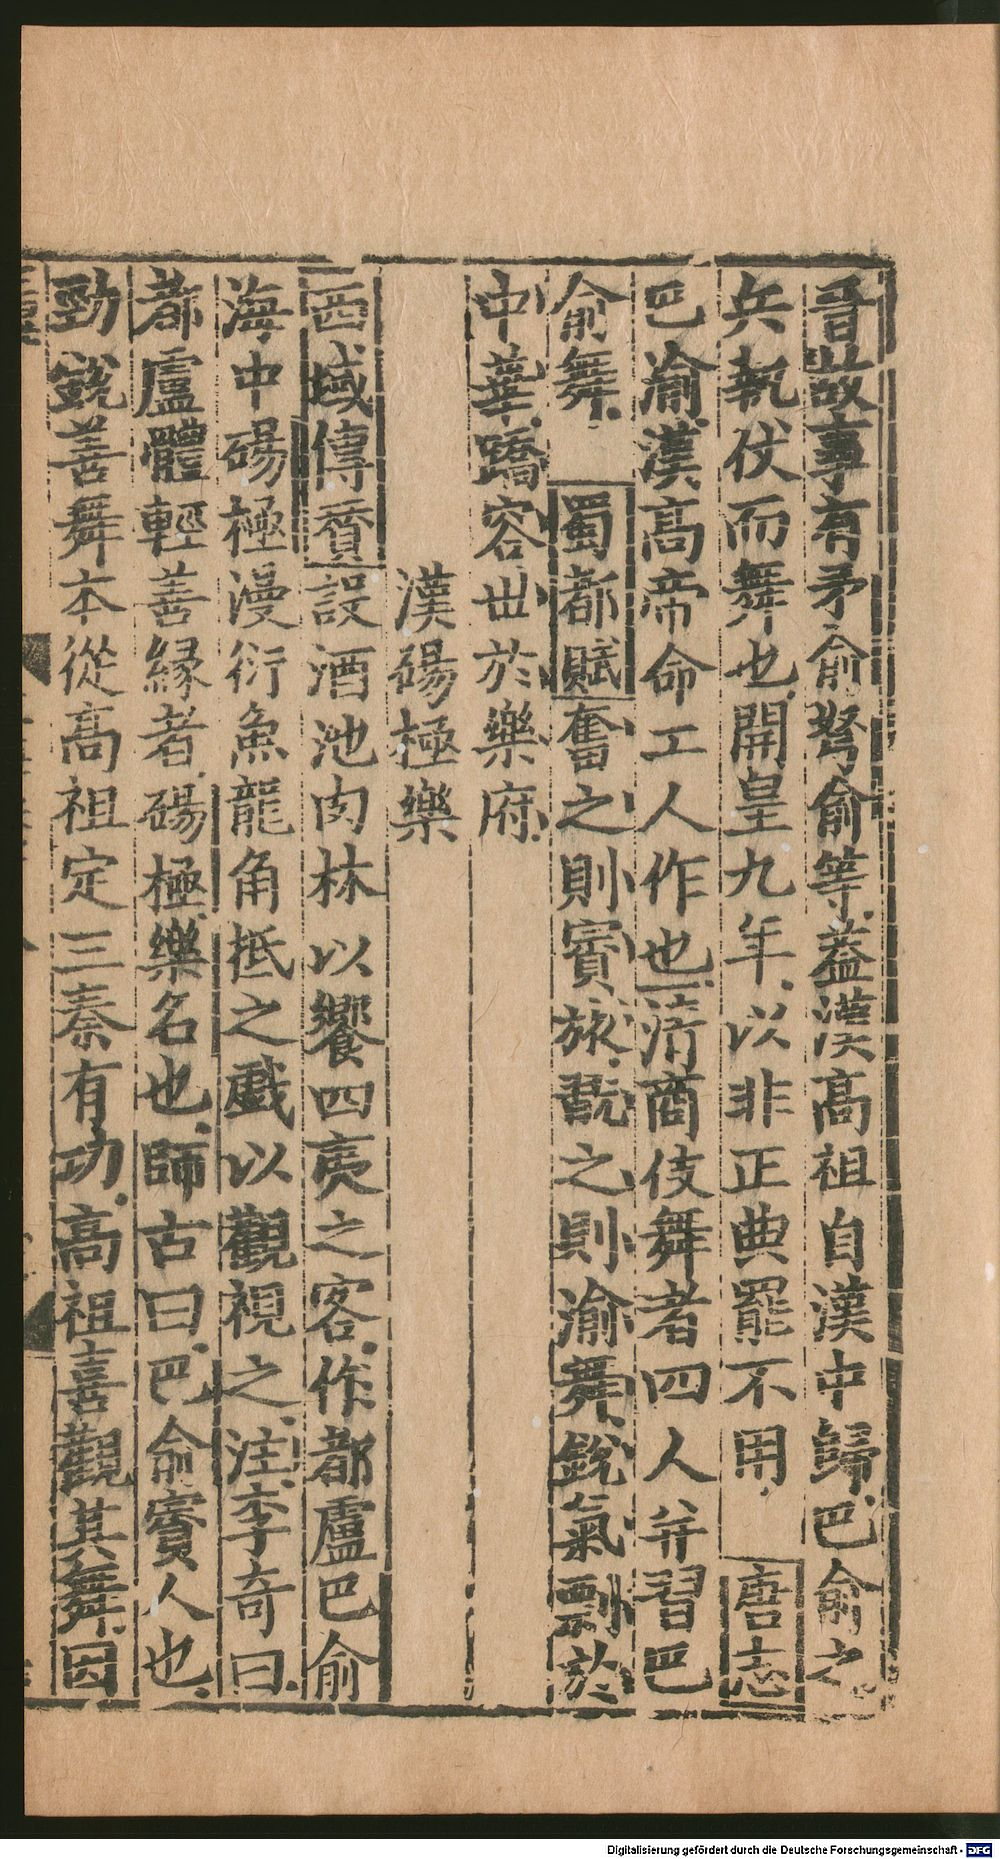 晉世故事有矛俞弩俞等蓋漢高祖自漢中歸巴俞之
兵執仗而舞也開皇九年以非正典罷不用 唐志
巴渝漢高帝命工人作也清商伎舞者四人并習巴
俞舞 蜀都賦奮之則賨旅翫之則渝舞銳氣剽於
中華蹻容世於樂府
漢碭極樂
西域傳贊設酒池肉林以饗四夷之客作都盧巴俞
海中碭極漫衍魚龍角抵之戲以觀視之注李奇曰
都盧體輕善緣者碭極樂名也師古曰巴俞賨人也
勁銳善舞本從高祖定三秦有功高祖喜觀其舞因
Digitalisierung gefördert durch die Deutsche Forschungsgemeinschaft - DFG